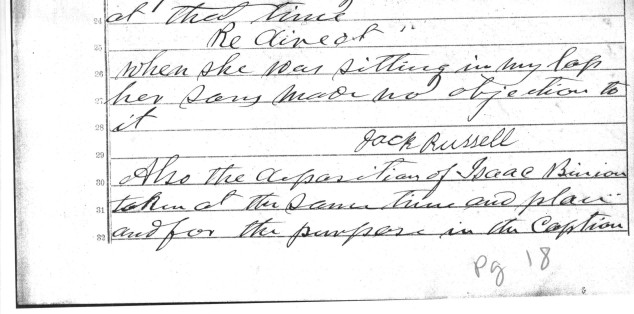 24 at that time
25 Re direct "
26 when she was sitting in my lap
27 her sons made no objection to
28 it
Jack Russell
29
30 Also the deposition of Isaac Binion
31 taken at the same time and place
32 and for the purpose in the Caption
Pg 18